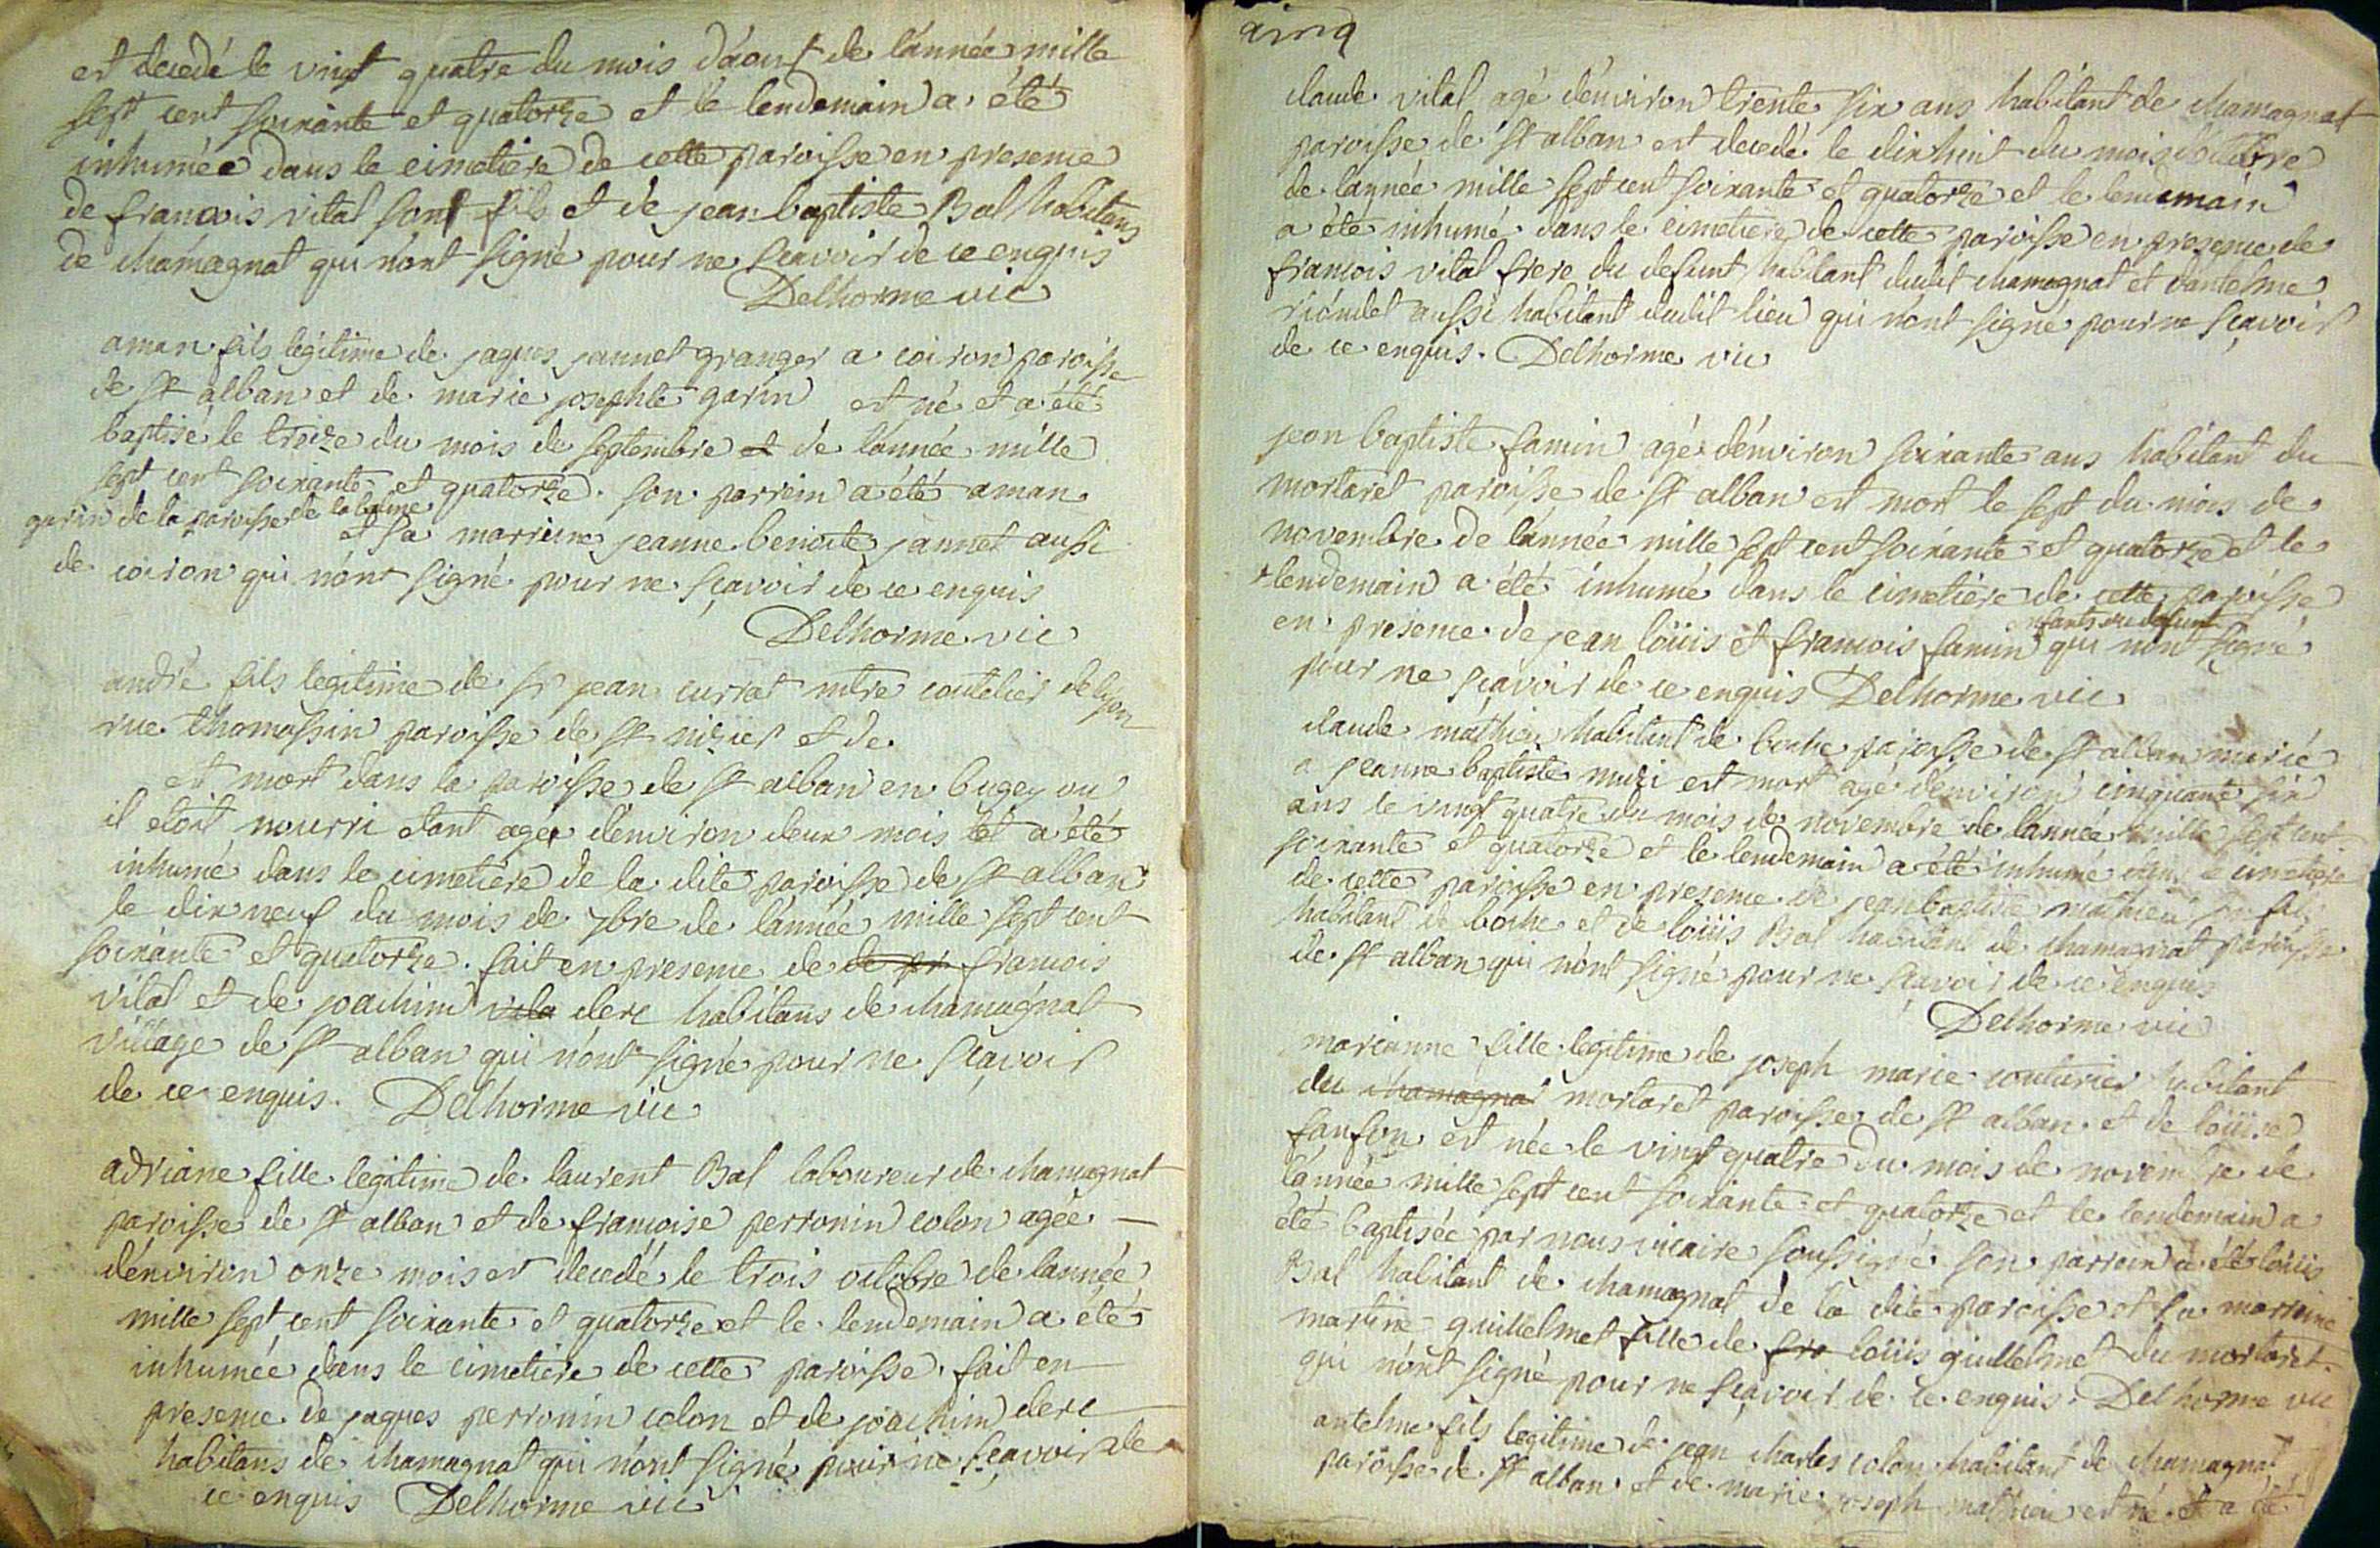 est decedé le vingt quatre du mois d'áout de l'année mille
sept cent soixante et quatorze et le lendemain a été
inhumée dans le cimetiere de cette paroisse en presence
de francois vital sont fils et de jean baptiste Bal habitans
de chamagnat qui n'ont signé pour ne scavoir de ce enquis
Delhorme vic
aman fils legitime de jaques jannet granger a coiron paroisse
de st alban et de marie josephte garin est né et a été
baptisé le treize du mois de septembre et de l'année mille
sept cent soixante et quatorze. son parrein a été aman
garin de la paroisse de labalme
et sa marreine jeanne benoite jannet aussi
de coiron qui n'ont signé pour ne sçavoir de ce enquis
Delhorme vic
andré fils legitime de sr jean currat mtre coutelier de lyon
rue thomassin paroisse de st nizier et de
est mort dans la paroisse de st alban en bugey ou
il etoit nourri etant agé d'environ deux mois et a été
inhumé dans le cimetiere de la dite paroisse de st alban
le dix neuf du mois de 7bre de l'année mille sept cent
soixante et quatorze. fait en presence de de fr francois
vital et de joachim vila clerc habitans de chamagnat
village de st alban qui n'ont signé pour ne sçavoir
de ce enquis. Delhorme vic
adriane fille legitime de laurent Bal laboureur de chamagnat
paroisse de st alban et de françoise perronin colon agée
d'environ onze mois est decedé le trois octobre de l'année
mille sept cent soixante et quatorze et le lendemain a été
inhumée dans le cimetiere de cette paroisse. fait en
presence de jaques perronin colon et de joachim clerc
habitans de chamagnat qui n'ont signé pour ne sçavoir de
ce enquis Delhorme vic
cinq
claude vital agé d'environ trente six ans habitant de chamagnat
paroisse de st alban est decedé le dix huit du mois d'octobre
de l'année mille sept cent soixante et quatorze et le lendemain
a été inhumé dans le cimetiere de cette paroisse en presence de
francois vital frere du defunt habitant dudit chamagnat et d'antelme
rioudet aussi habitant dudit lieu qui n'ont signé pour ne sçavoir
de ce enquis. Delhorme vic
jean baptiste famin agé d'environ soixante ans habitant du
mortaret paroisse de st alban est mort le sept du mois de
novembre de l'année mille sept cent soixante et quatorze et le
lendemain a été inhumé dans le cimetiere de cette paroisse
enfants du defunt
en presence de jean loüis et francois famin qui n'ont signé
pour ne sçavoir de ce enquis Delhorme vic
claude mathieu habitant de boche paroisse de st alban marié
a jeanne baptiste muzi est mort agé d'environ cinquante six
ans le vingt quatre du mois de novembre de l'année mille sept cent
soixante et quatorze et le lendemain a été inhumé dans le cimetiere
de cette paroisse en presence de jean baptiste mathieu son fils
habitant de boche et de loüis Bal habitant de chamagnat paroisse
de st alban qui n'ont signé pour ne sçavoir de ce enquis
Delhorme vic
marianne fille legitime de joseph marie couturier habitant
du chamagnat mortaret paroisse de st alban et de loüise
fanfon est née le vingt quatre du mois de novembre de
l'année mille sept cent soixante et quatorze et le lendemain a
été baptisée par nous vicaire soussigné son parrein a été loüis
Bal habitant de chamagnat de la dite paroisse et sa marreine
martine guillelmet fille de fra loüis guillelmet du mortaret
qui n'ont signé pour ne sçavoir de ce enquis. Delhorme vic
antelme fils legitime de jean charles colon habitant de chamagnat
paroisse de st alban et de marie joseph mathieu est né et a été